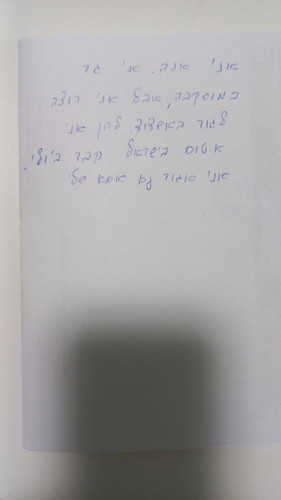 אני אנה. אני גר
במוסקבה, אבל אני רוצב
לגור באשדוד. לחן אני
אטוס בישראל קבר ביולי.
אני אגור גם אמא שלי